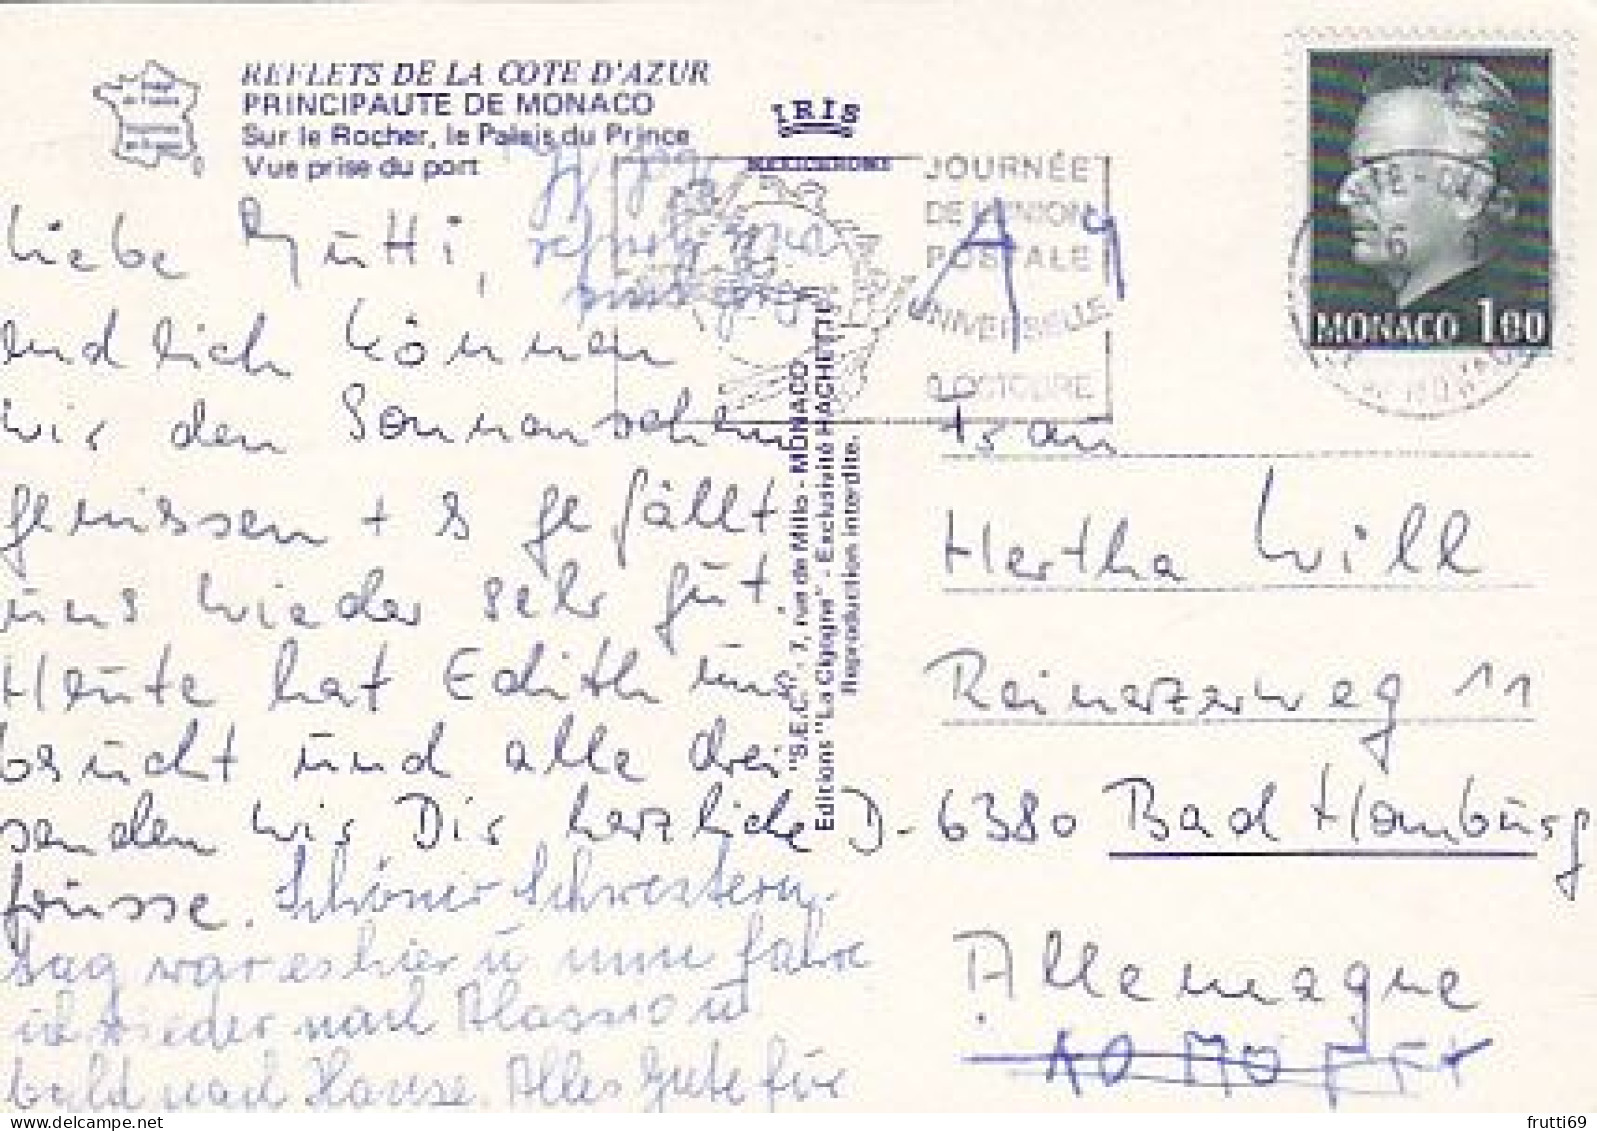 REFLETS DE LA COTE D'AZUR
PRINCIPAUTE DE MONACO
Sur le Rocher, le Palais du Prince
Vue prise du port
IRIS
MEXICHROME
JOURNÉE
DE L'UNION
POSTALE
UNIVERSELLE
9 OCTOBRE
MONACO 1.00
Liebe Mutti,
endlich können
wir den Sonnenschein
geniessen + s gefällt
uns wieder sehr gut.
Heute hat Edith uns
besucht und alle drei
senden wir Dir herzliche
Grüsse. Schöner Schwestern-
tag war es hier u nun fahre
ich wieder nach Alassio u
bald nach Hause. Alles Gute für
"S.E.L.P." - 7, rue de Millo - MONACO
Editions "La Cigogne" - Exclusivité HACHETTE
Reproduction interdite.
Frau
Hertha Will
Reinerzerweg 11
D-6380 Bad Homburg
Allemagne
frutti69